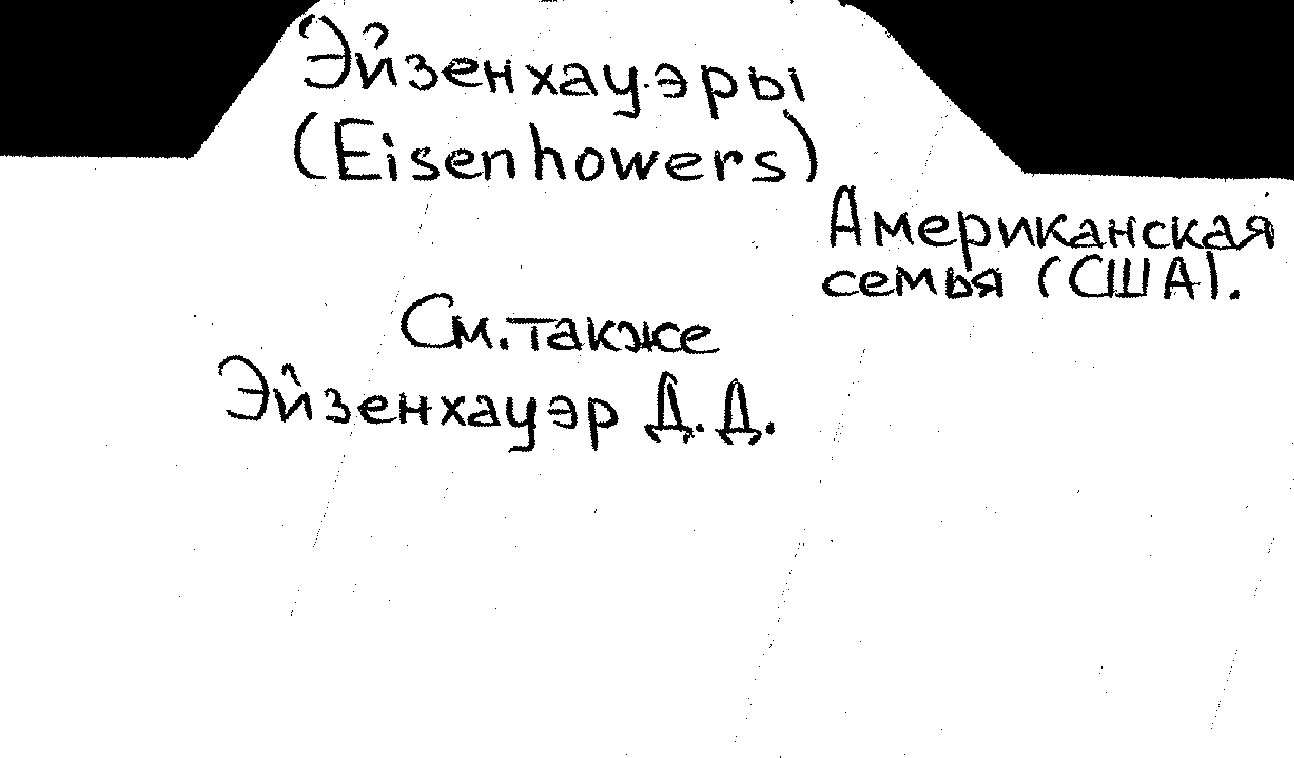 Эйзенхауэры
(Eisenhowers)
Американская
семья (США).
См. также
Эйзенхауэр Д.Д.